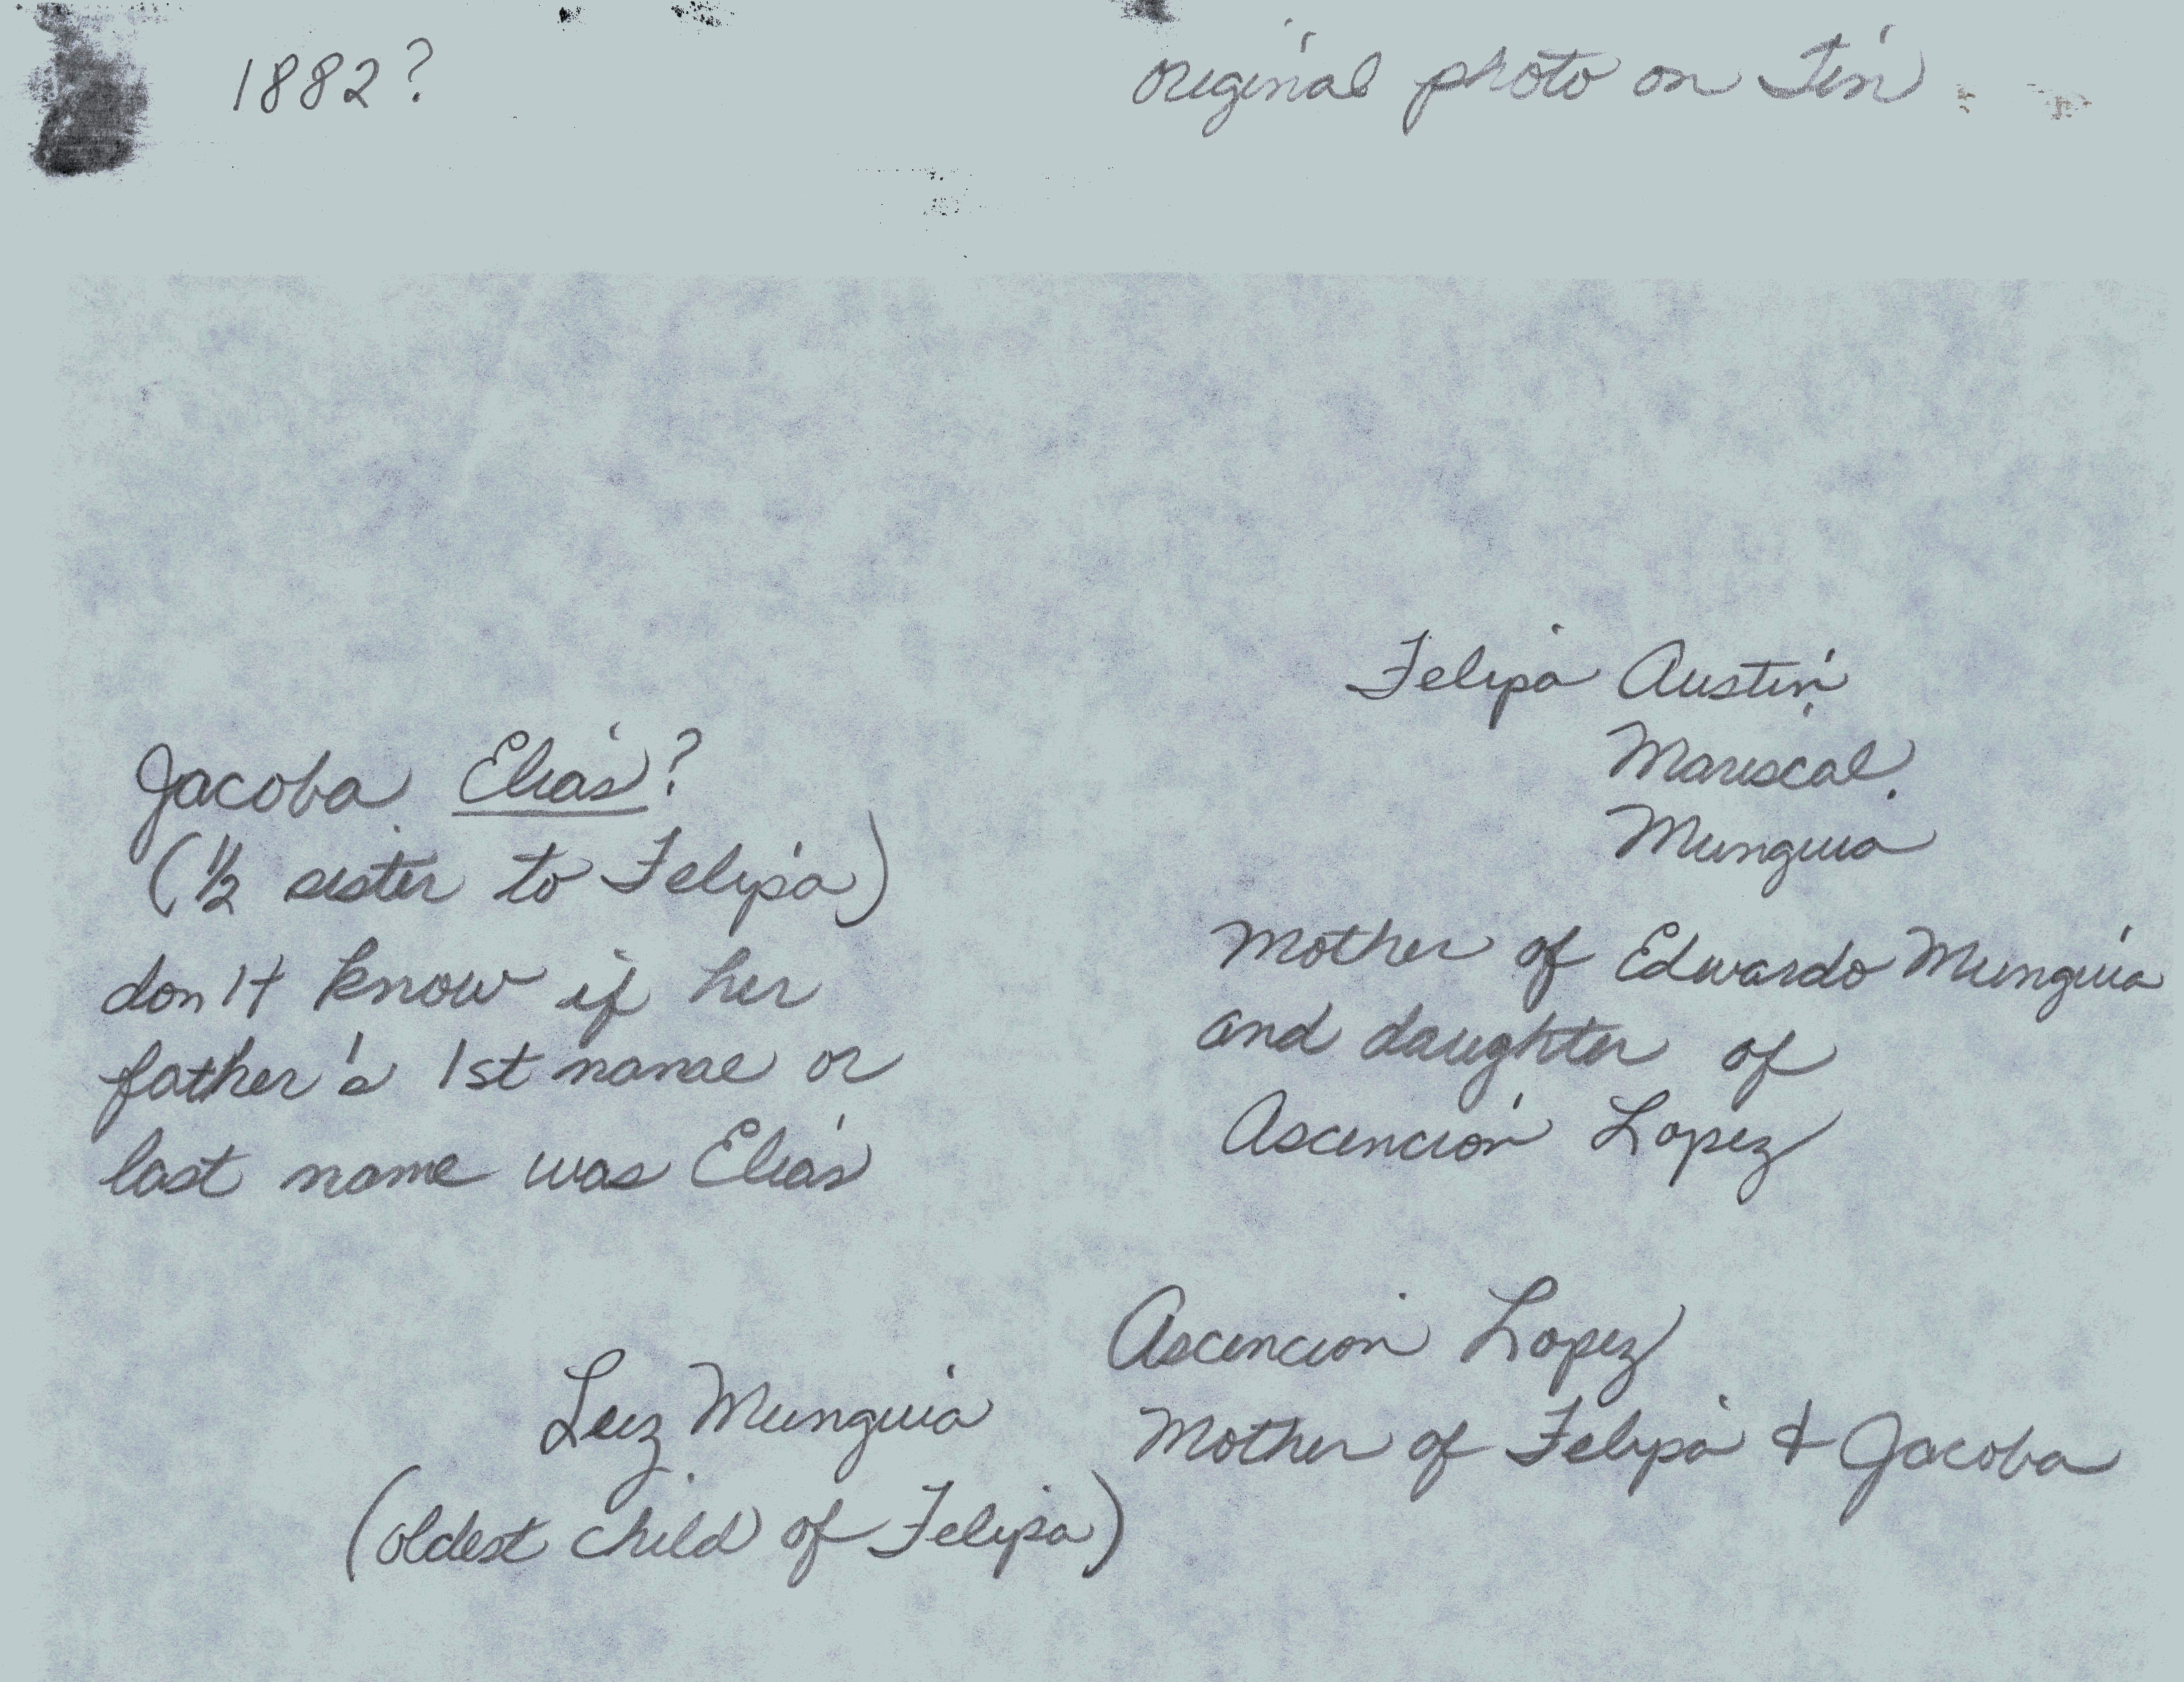 1882?
original photo on Tin
Felipa Austin
Mariscal
Munguia
Mother of Edwardo Munguia
and daughter of
Ascencion Lopez
Jacoba Elias?
(½ sister to Felipa)
don't know if her
father's 1st name or
last name was Elias
Ascencion Lopez
Mother of Felipa & Jacoba
Luz Munguia
(oldest child of Felipa)